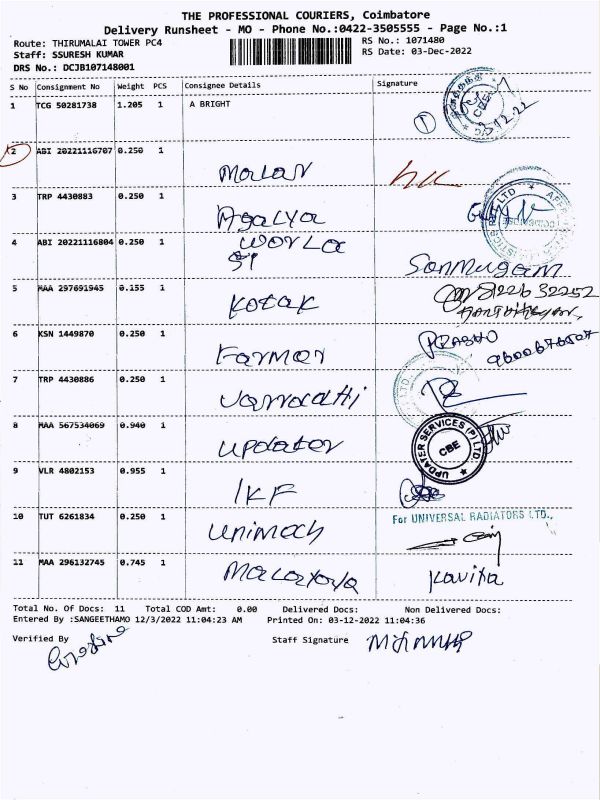 THE PROFESSIONAL COURIERS, Coimbatore
Delivery Runsheet - MO - Phone No.:0422-3505555 - Page No.:1
Route: THIRUMALAI TOWER PC4
RS No.: 1071480
Staff: SSURESH KUMAR
RS Date: 03-Dec-2022
DRS No.: DCJB107148001
S No Consignment No Weight PCS Consignee Details Signature
1 TCG 50281738 1.205 1 A BRIGHT
1
2 ABI 20221116707 0.250 1
Malar
3 TRP 4430883 0.250 1
Agalya
4 ABI 20221116804 0.250 1 World
Sanmugam
5 MAA 297691945 0.155 1
Kotak
6 KSN 1449870 0.250 1
Farmer
7 TRP 4430886 0.250 1
8 MAA 567534069 0.940 1
Updater
UPDATER SERVICES (P) LTD.
CBE
9 VLR 4802153 0.955 1
IKF
10 TUT 6261834 0.250 1
For UNIVERSAL RADIATORS LTD.,
Unimech
11 MAA 296132745 0.745 1
Kavitha
Total No. Of Docs: 11 Total COD Amt: 0.00 Delivered Docs: Non Delivered Docs:
Entered By :SANGEETHAMO 12/3/2022 11:04:23 AM Printed On: 03-12-2022 11:04:36
Verified By Staff Signature